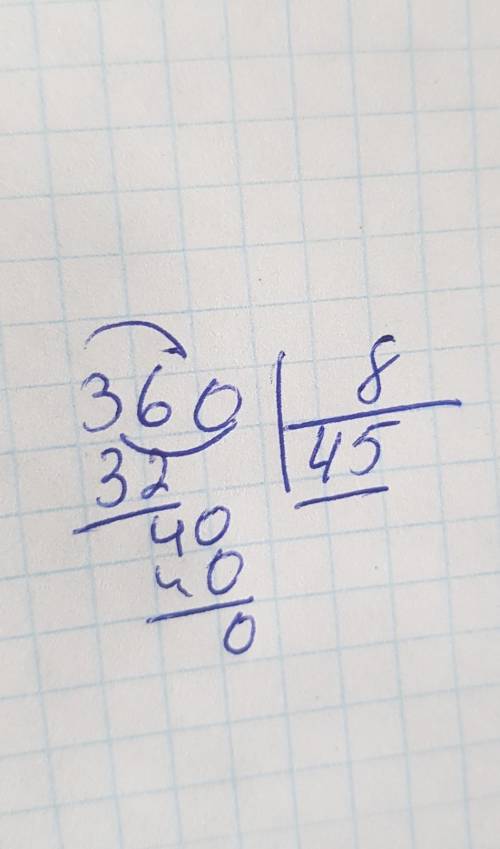 360 8
32 45
40
40
0